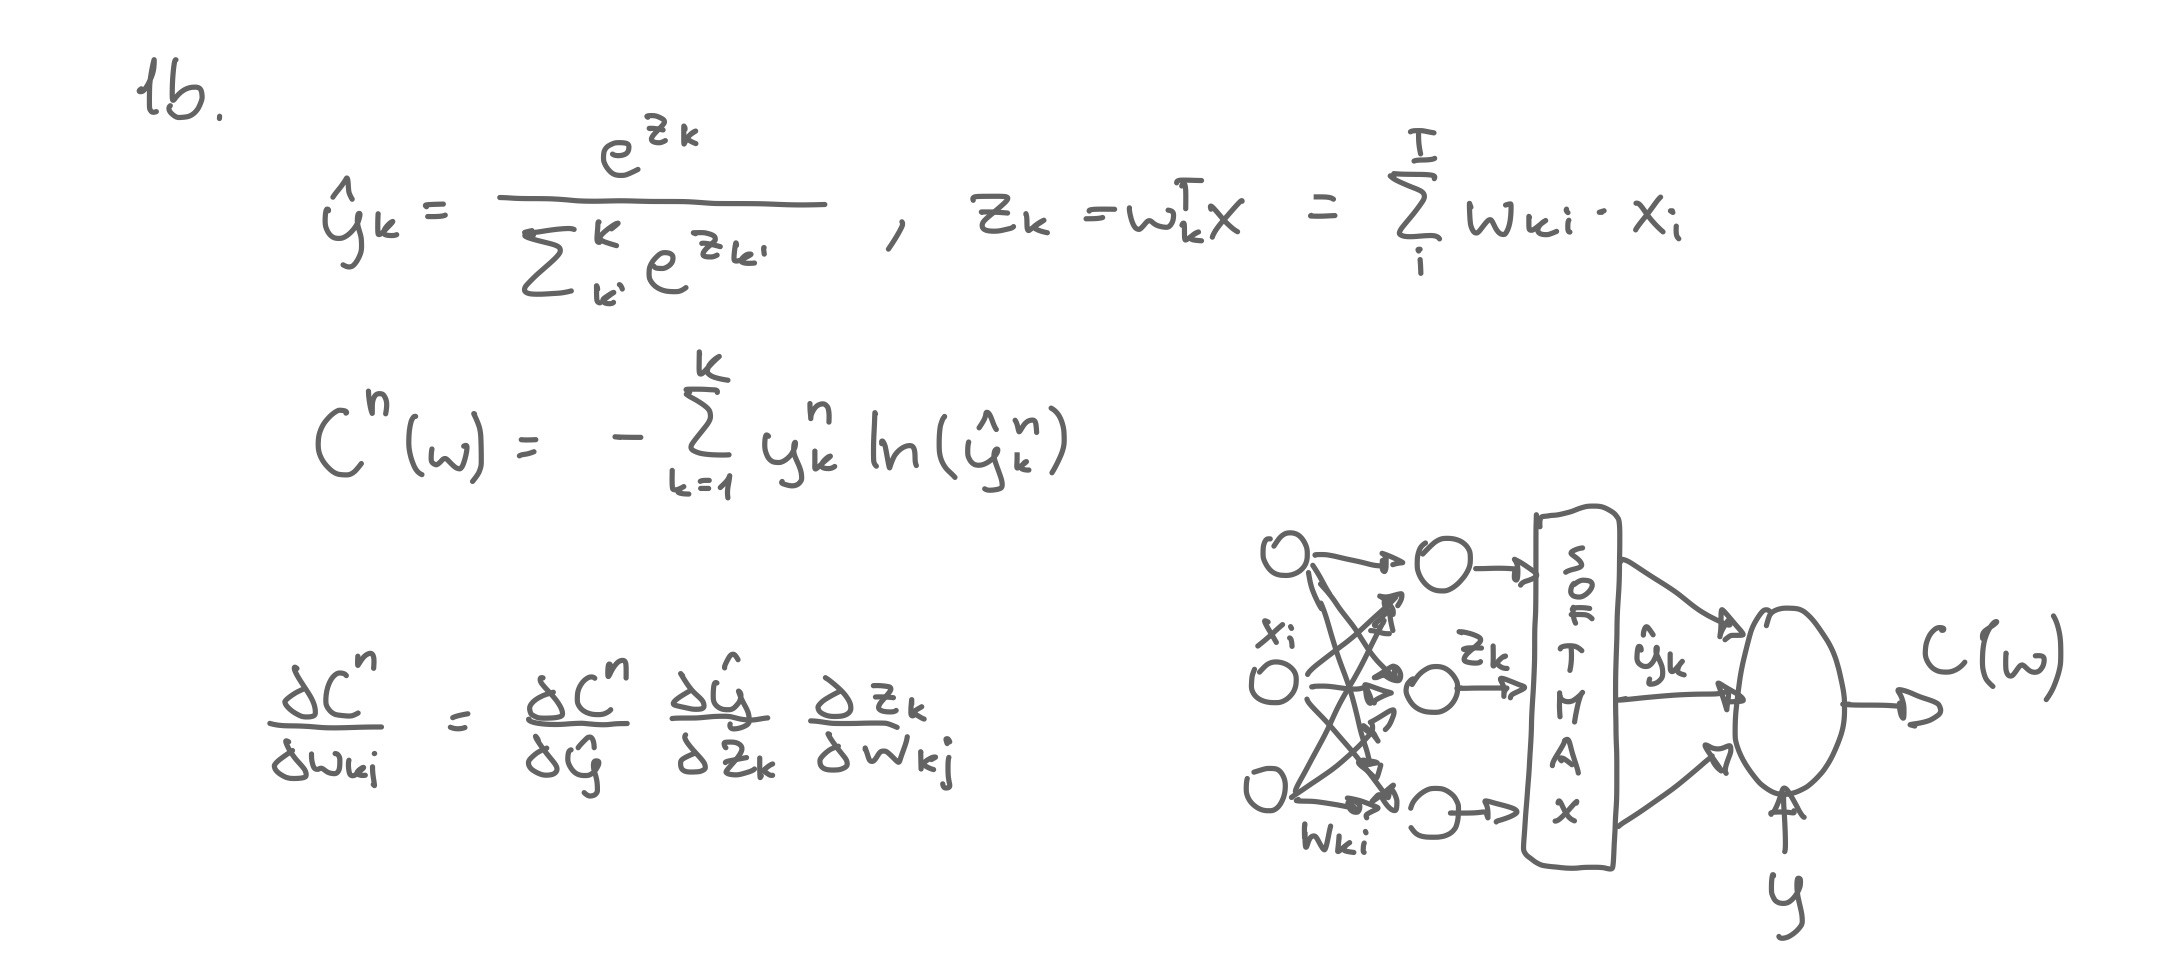 1b.
ŷ_k = e^{z_k} / ∑_{k'}^{K} e^{z_{k'}} , z_k = w_k^T x = ∑_i^I w_{ki} · x_i
C^n(w) = - ∑_{k=1}^{K} y_k^n ln(ŷ_k^n)
∂C^n/∂w_{kj} = ∂C^n/∂ŷ ∂ŷ/∂z_k ∂z_k/∂w_{kj}
x_i
w_{ki}
z_k
SOFTMAX
ŷ_k
y
C(w)